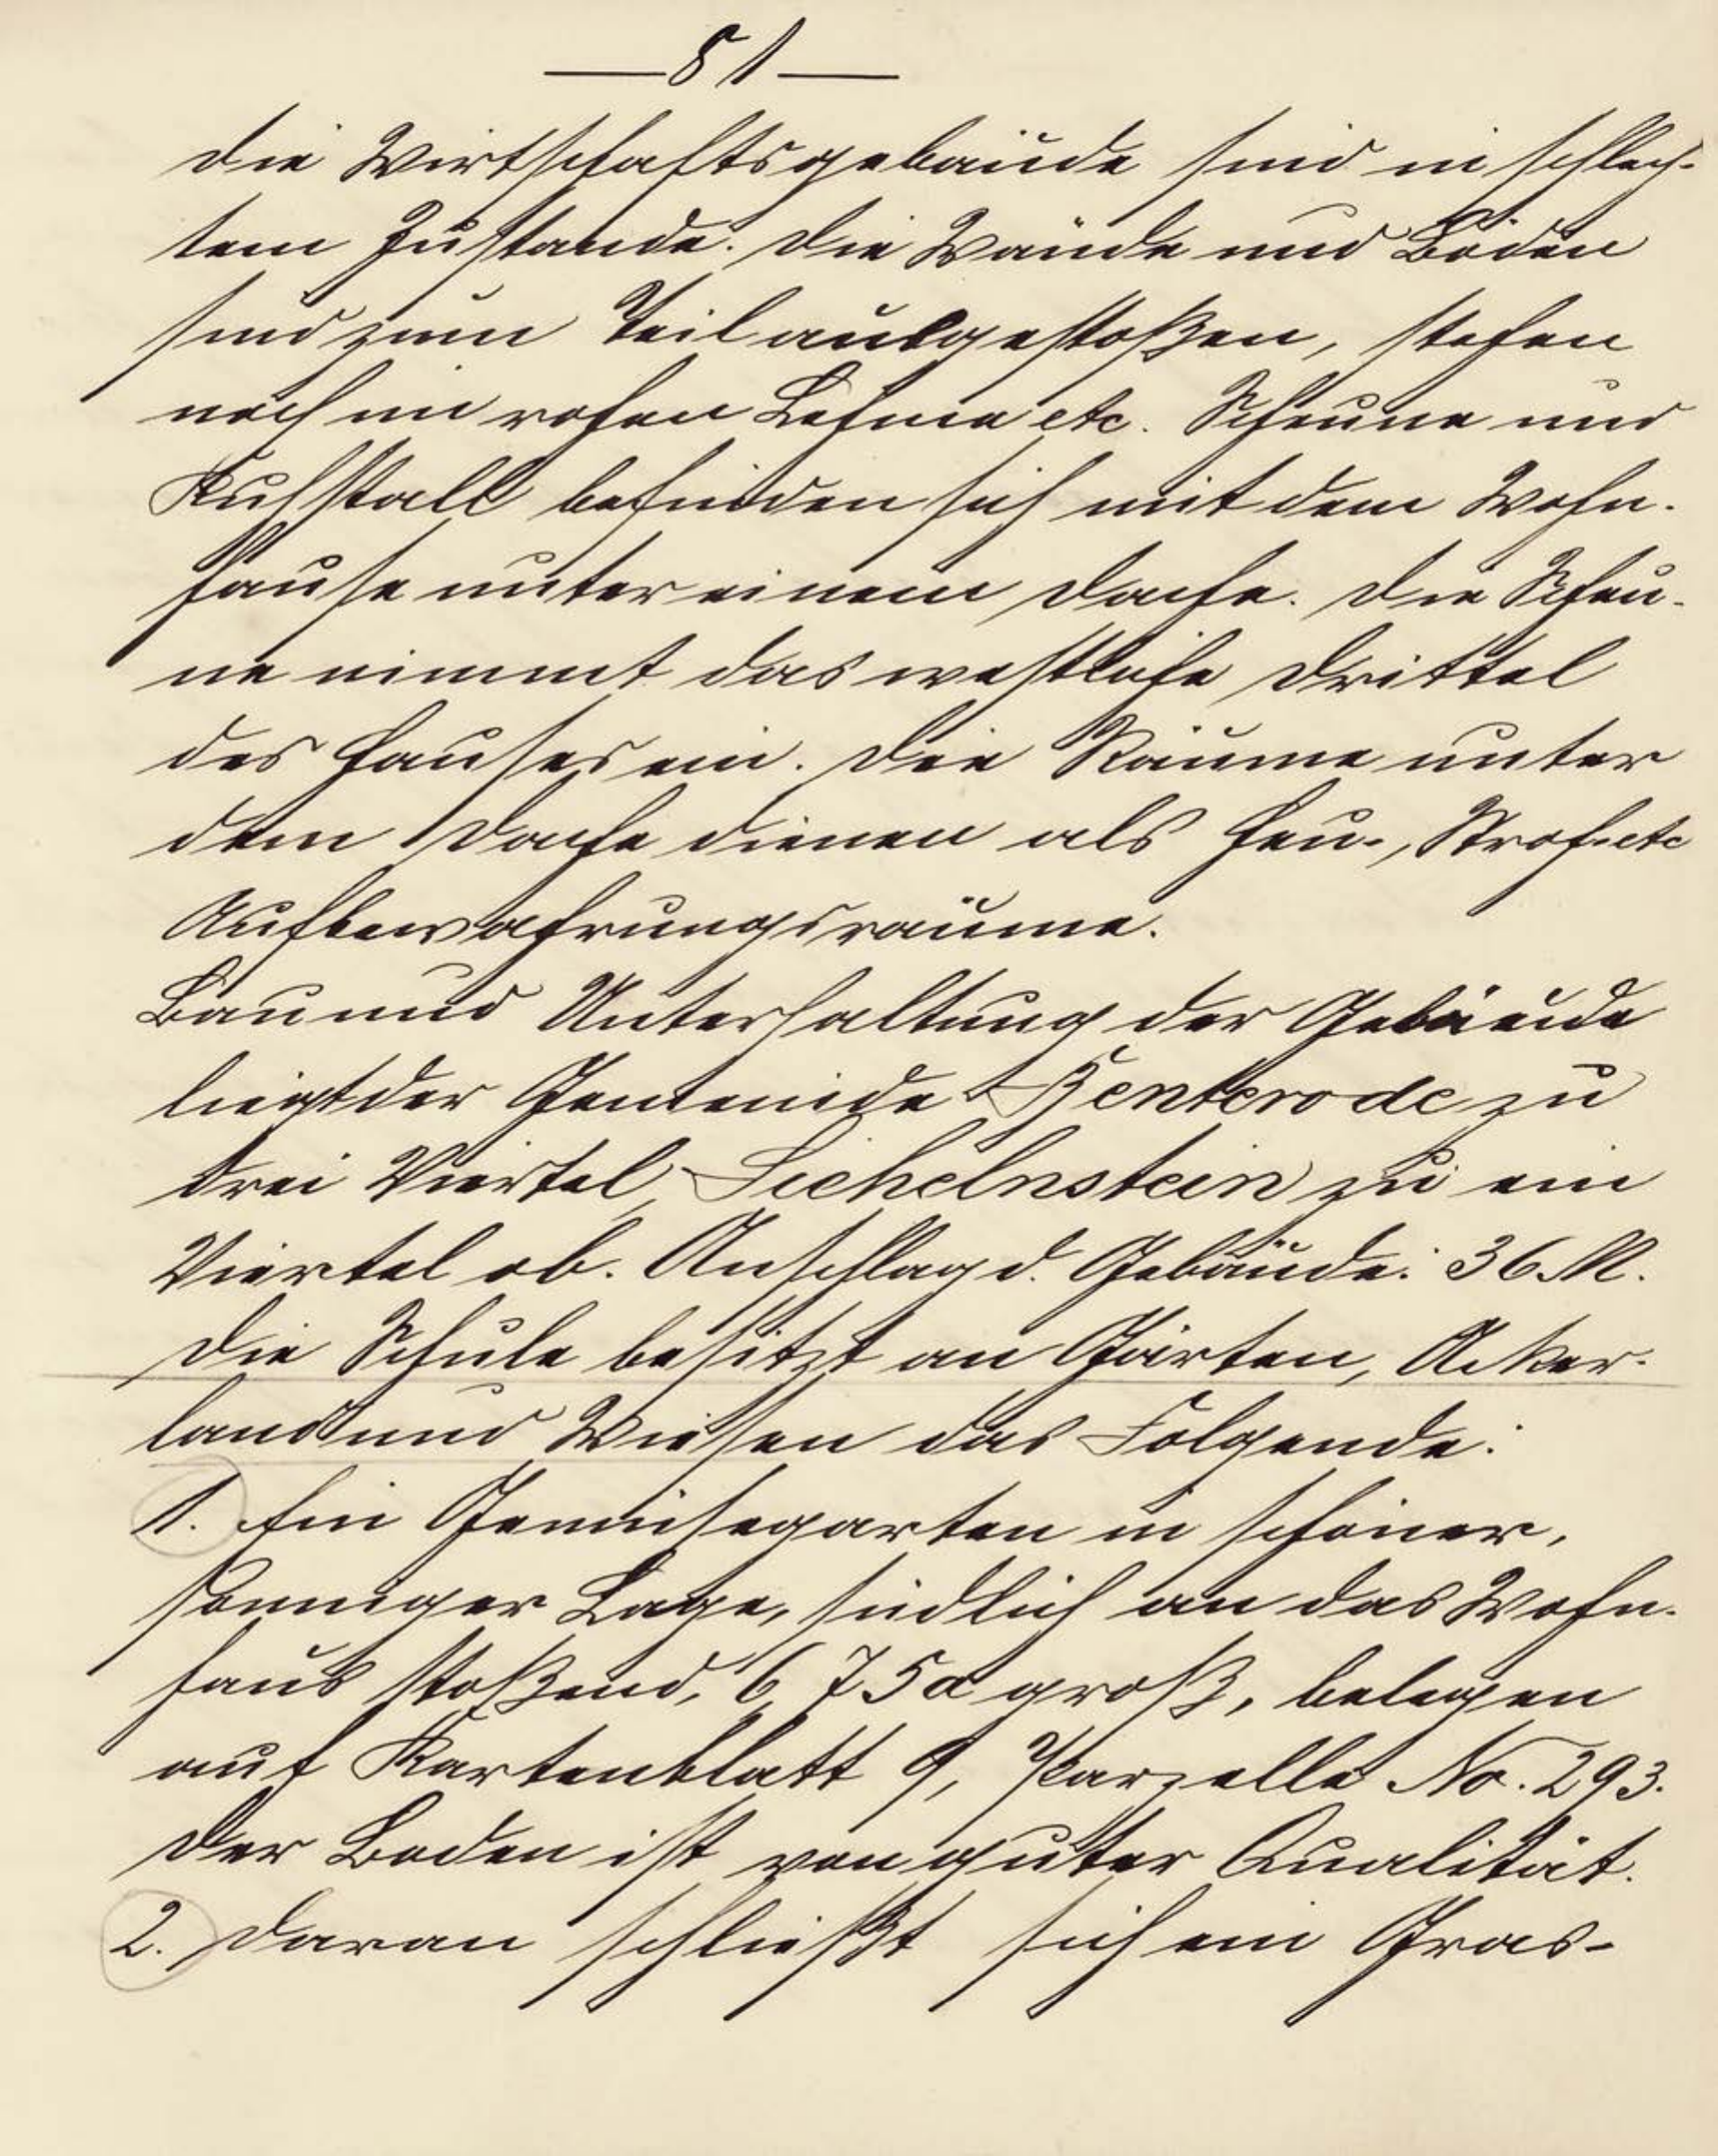 — 81 —
Die Wirtschaftsgebäude sind in schlech-
tem Zustande. Die Wände und Böden
sind zum Teil ausgestoßen, stehen
noch im rohen Lehme etc. Scheune und
Kuhstall befinden sich mit dem Wohn-
hause unter einem Dache. Die Scheu-
ne nimmt das westliche Drittel
des Hauses ein. Die Räume unter
dem Dache dienen als Heu-, Stroh- etc
Aufbewahrungsräume.
Bau und Unterhaltung der Gebäude
liegt der Gemeinde Benterode zu
drei Viertel, Sichelnstein zu ein
Viertel ob. Anschlag d. Gebäude: 36 M.
Die Schule besitzt an Gärten, Acker-
land und Wiesen das Folgende:
1. Ein Gemüsegarten in schöner,
sonniger Lage, südlich an das Wohn-
haus stoßend, 6,75 a groß, belegen
auf Kartenblatt 9, Parzelle No. 293.
Der Boden ist von guter Qualität.
2. Daran schließt sich ein Gras-